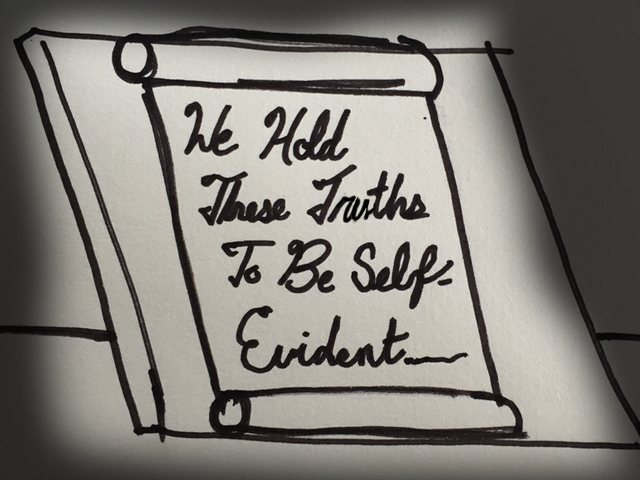 We Hold
These Truths
To Be Self-
Evident